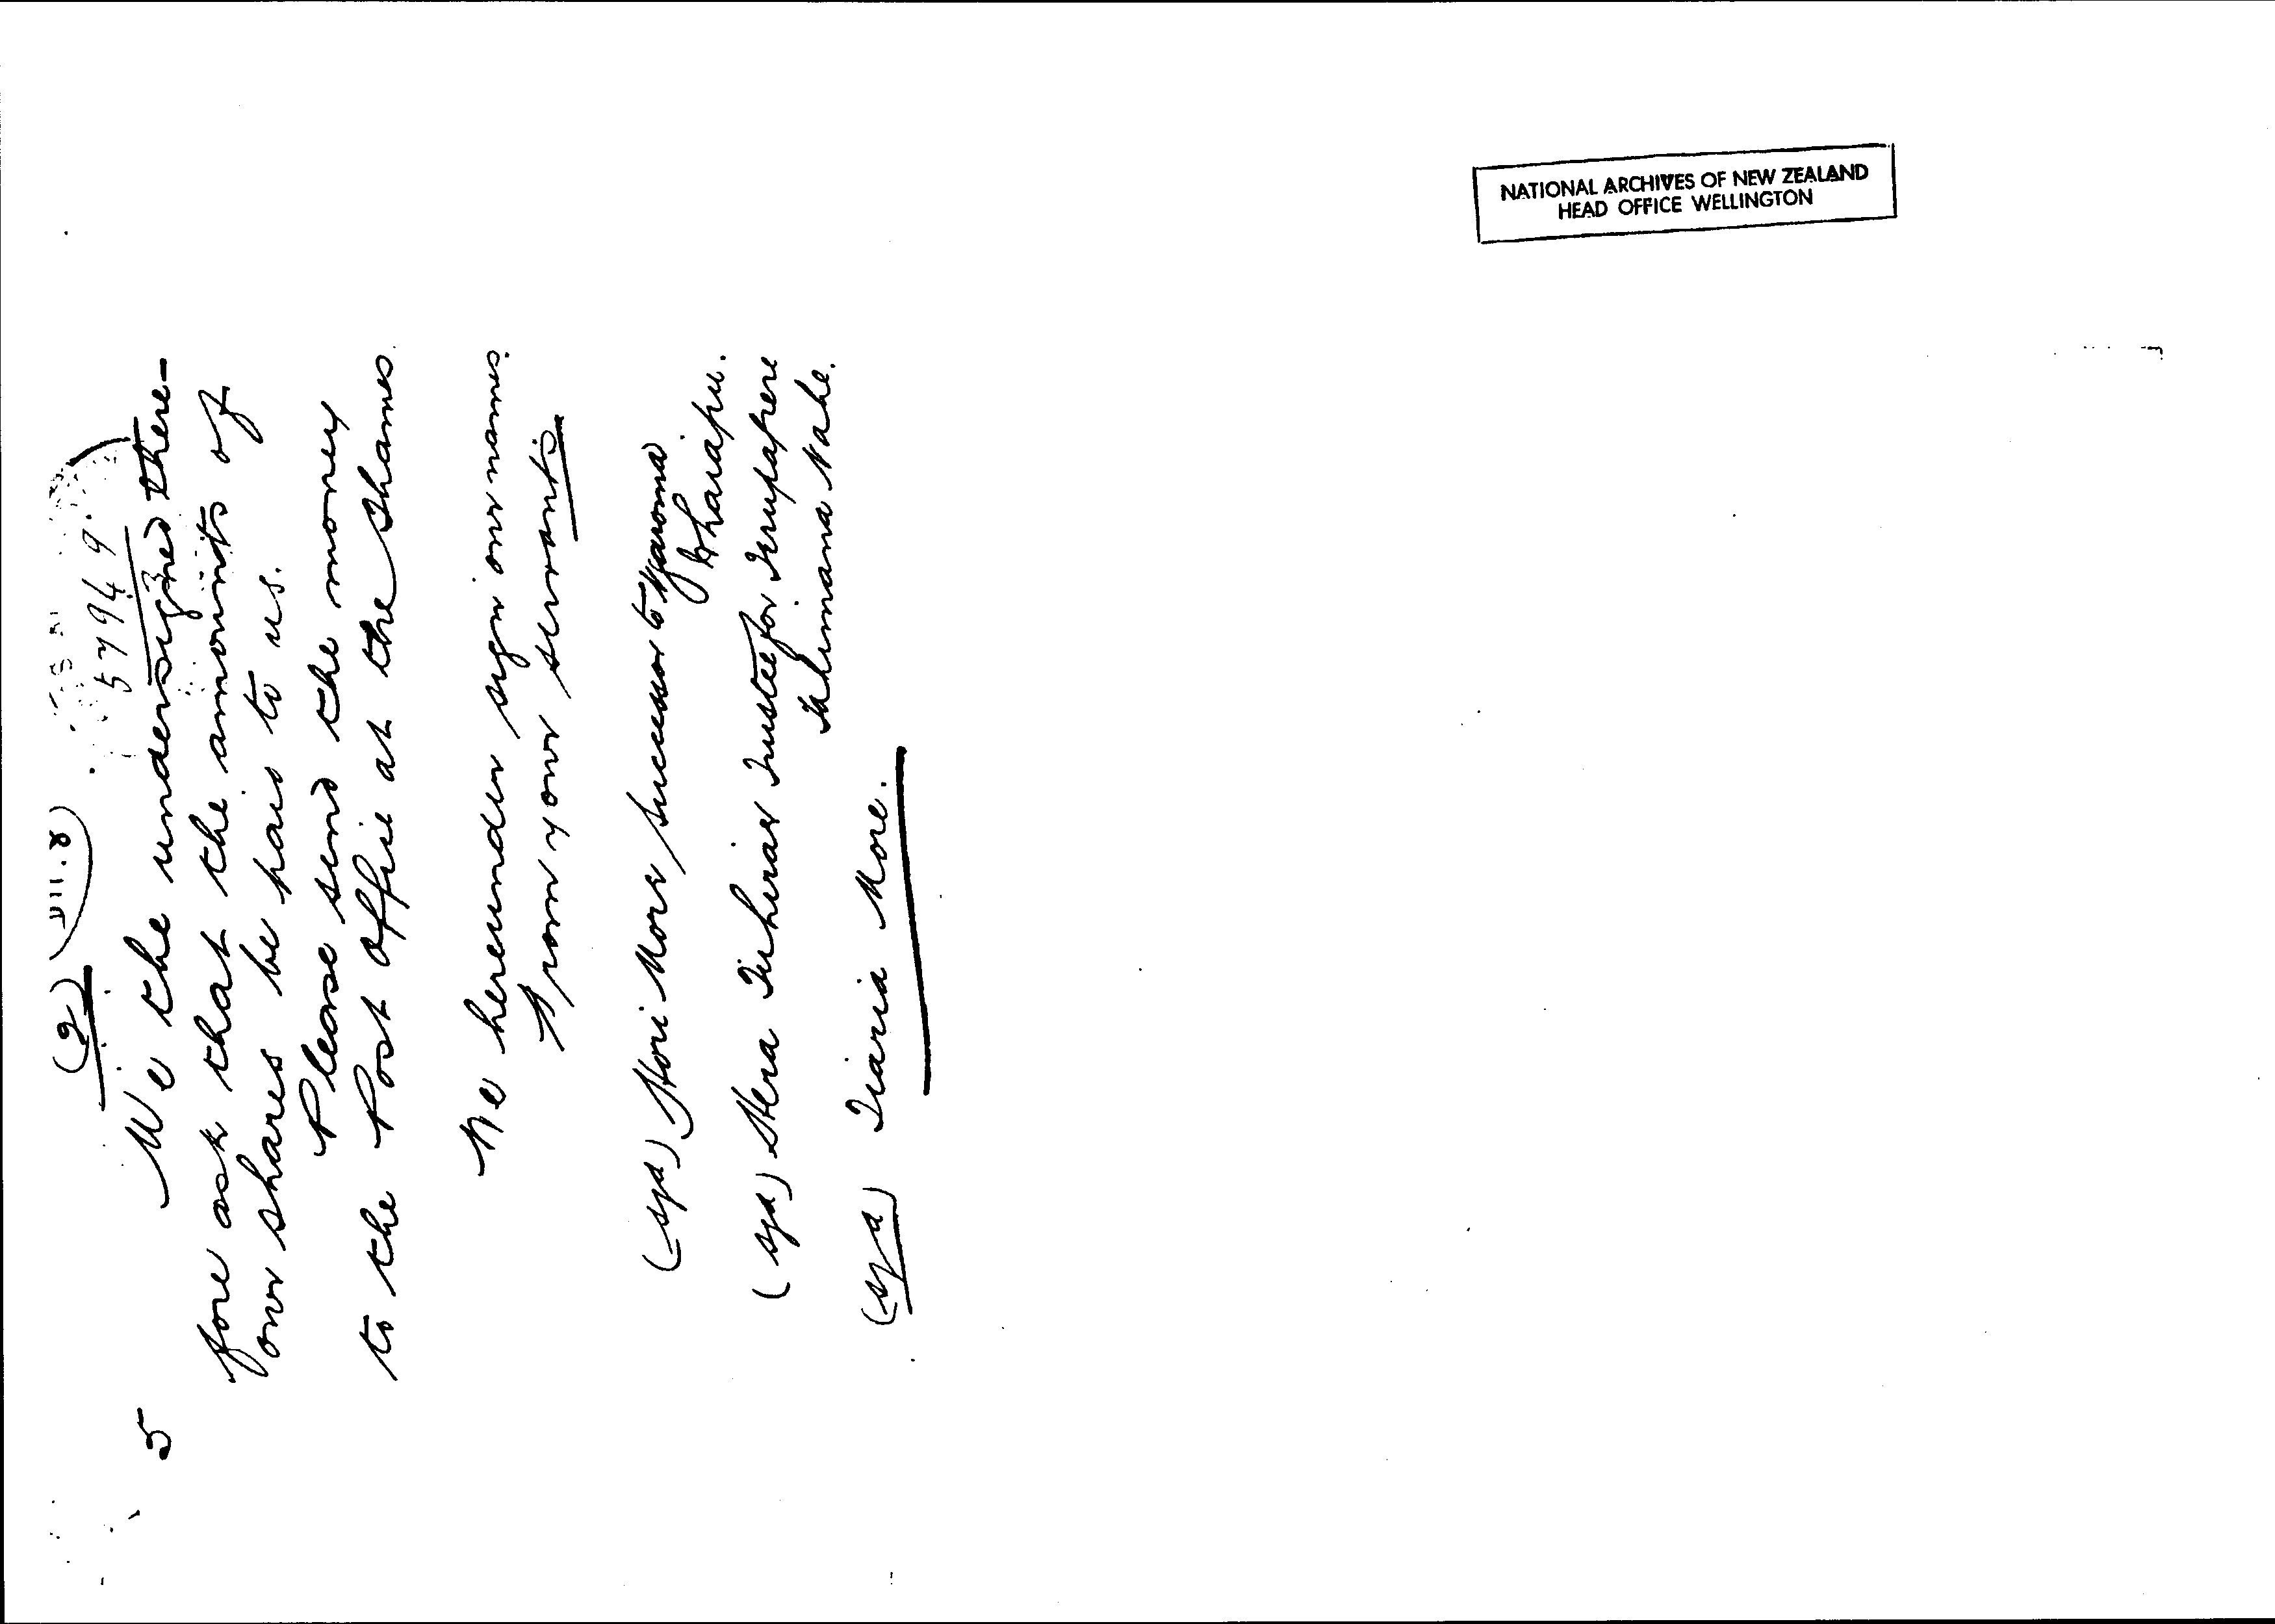 (2)
57949
5 We the undersigned there-
fore ask that the amounts of
our shares be paid to us.
Please send the money
to the Post office at the Thames.
We hereunder sign our names.
From your servants
(sgd) Hori More successor to Ngaroma
Wharapu.
(sgd) Hera Trustee for
Nahe.
(sgd) Tiaria More.
NATIONAL ARCHIVES OF NEW ZEALAND
HEAD OFFICE WELLINGTON